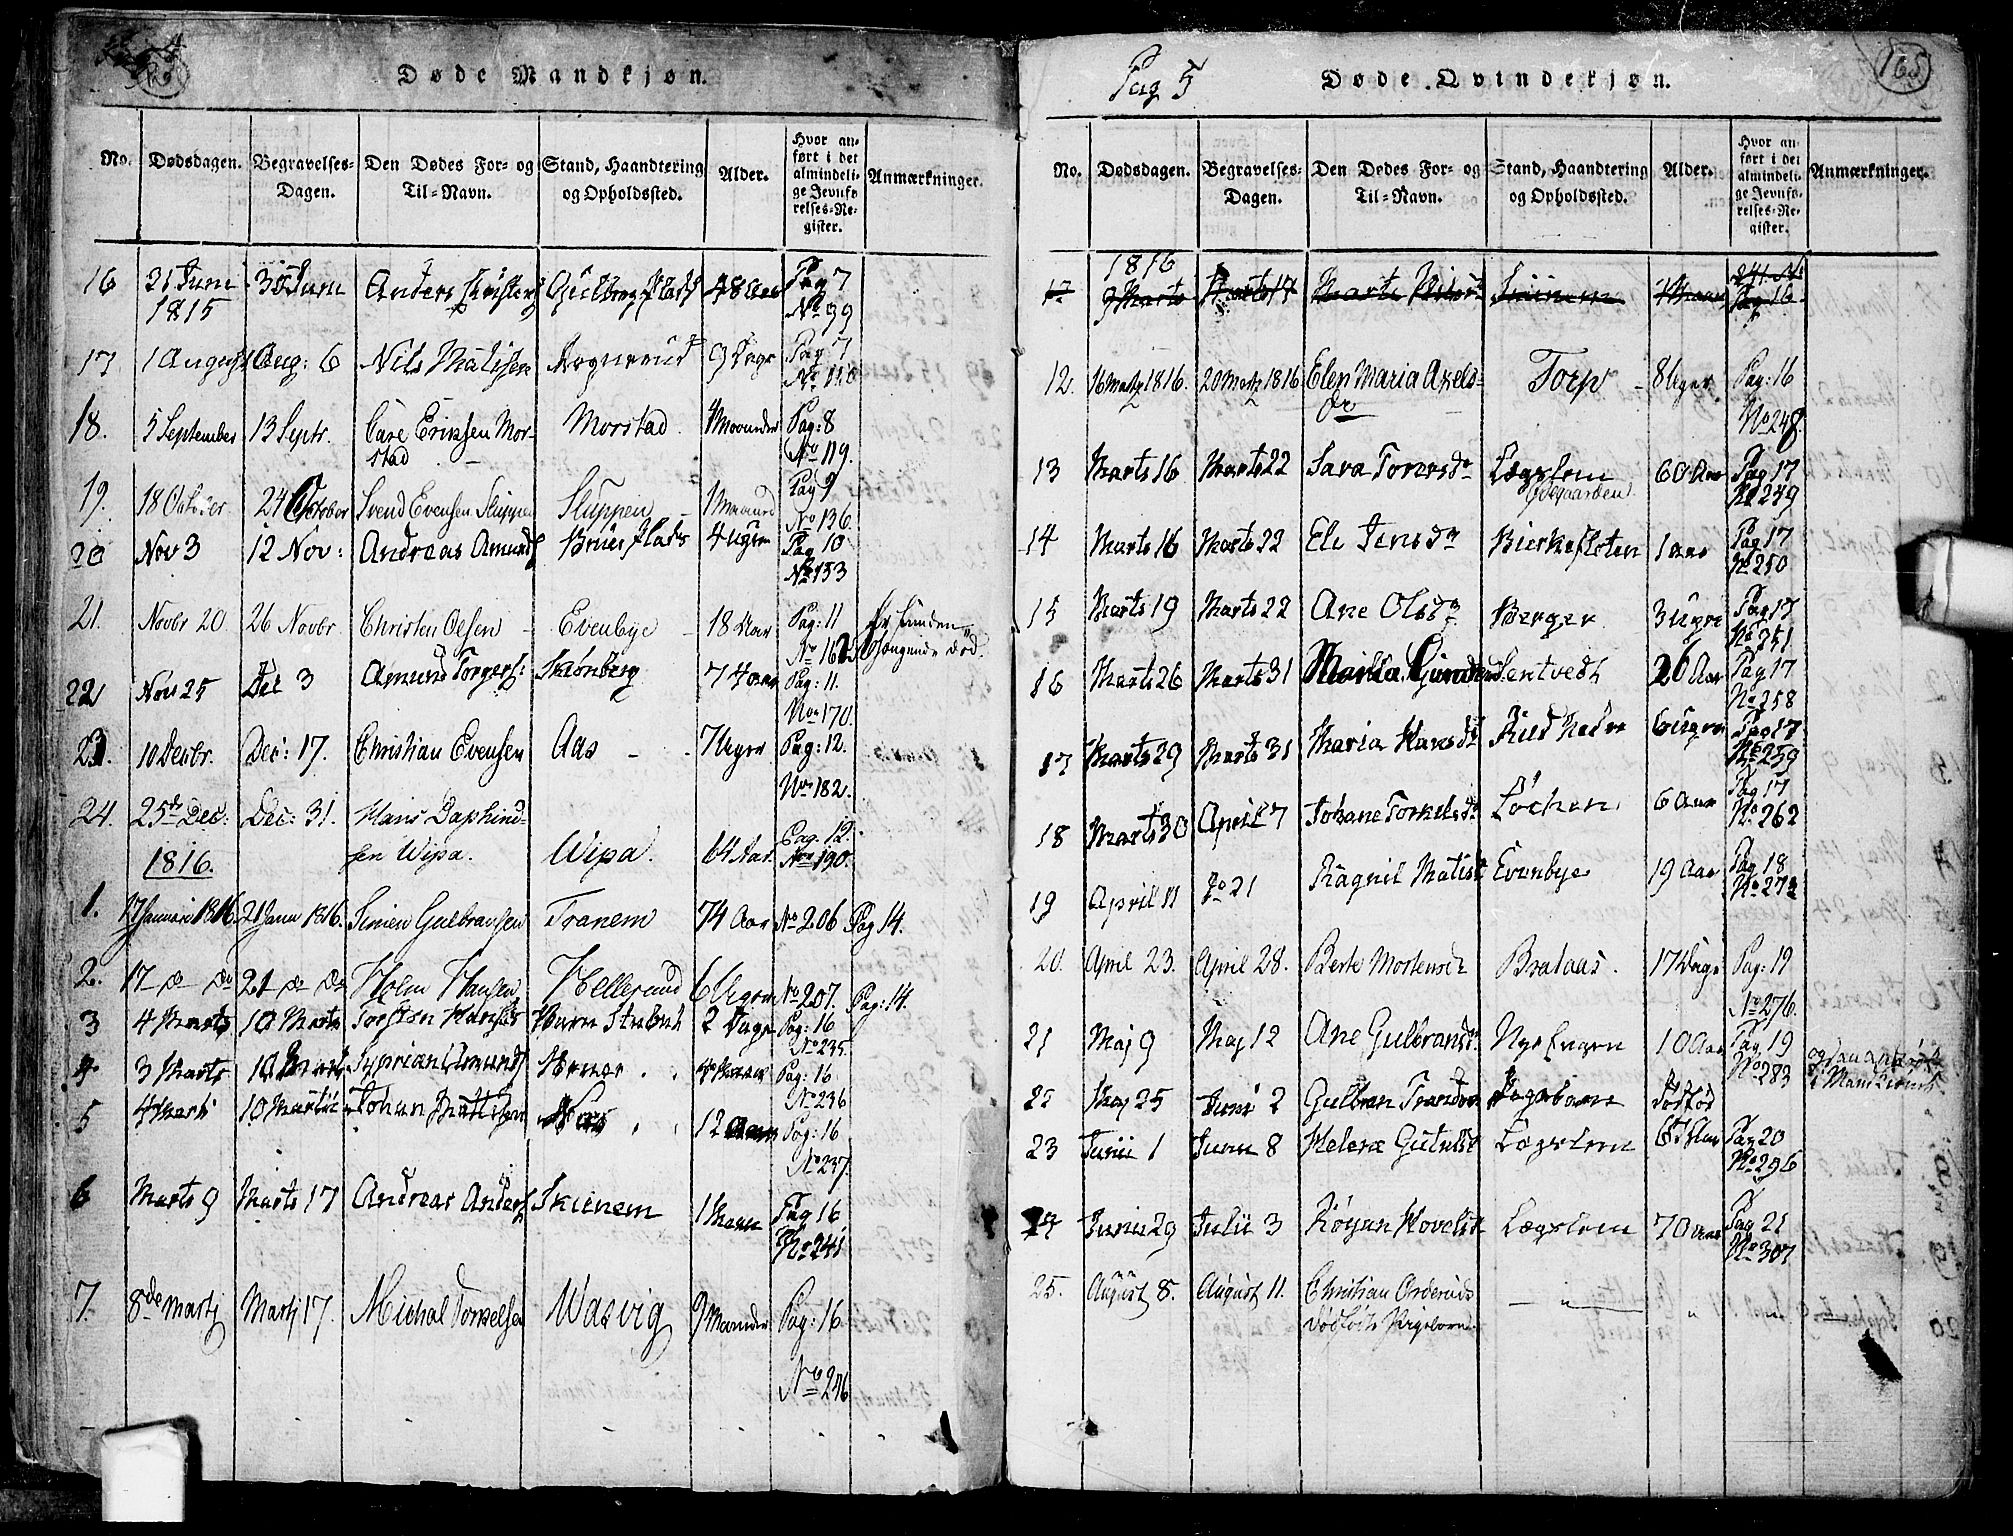 Døde Mandkjøn.
No. Dødsdagen. Begravelses-Dagen. Den Dødes For- og Til-Navn. Stand, Haandtering og Opholdssted. Alder. Hvor anført i det almindelige Jevnførelses-Register. Anmærkninger.
16 21 Juni 1815 30 Juni Anders 48 Aar Pag 7 No 99
17 1 August Aug: 6 Nils Matisen 9 Dage Pag 7 No 110
18. 5 September 13 Septr. Care Eriksen Morstad Morstad 4 Maaneder Pag: 8 No 119.
19. 18 October 24 October Svend Evensen Sluppen Sluppen 1 Maaned Pag 9 No 136.
20 Nov 3 12 Nov: Andreas Amunds Bruer Plads 4 uger Pag 10 No 153
21. Novbr 20. 26 Novbr Christen Olsen Evenbye 18 Aar Pag: 11 No 162 er funden hængende død.
22 Nov 25 Dec 3 Amund Torgers: Skönberg 74 aar Pag: 11. No 170.
23. 10 Decbr. Dec: 17. Christian Evensen Aas 7 Uger Pag: 12. No 182.
24. 25de Dec: Dec: 31. Hans Daphindsen Wipa. Wipa. 64 Aar. Pag. 12. No 190.
1816.
1. 17 Januari 1816. 21 Janu 1816. Simen Gulbransen Tranem 74 Aar No 206 Pag 14.
2. 17 - 21 - Holm Hansen Hellerud 6 Uger No 207. Pag: 14.
3 4 Marts 10 Marts Torsten Hansen 2 Dage Pag: 16 No 235.
4 3 Marts 10 Marts Syprian Amunds Pag: 16 No 236
5 4 Marts 10 Martii Johan Mattisen 12 Pag: 16 No 237.
6 Marts 9 Marts 17 Andreas Anders Skienem 1 Maan Pag 16 No 241
7. 8de Martj Martj 17. Michal Torkelsen Wasvig 9 Maaneder Pag: 16. No 246
Pag 5 Døde Qvindekjøn. 165
No. Dødsdagen. Begravelses-Dagen. Den Dødes For- og Til-Navn. Stand, Haandtering og Opholdssted. Alder. Hvor anført i det almindelige Jevnførelses-Register. Anmærkninger.
1816
9 Marts Marts 17 Pag 16
12. 16 Martz 1816. 20 Martz 1816 Elen Maria Axelsdr Torp 8 Uger Pag: 16 No 248.
13 Marts 16 Marts 22 Sara Toversdr Lægslem Ødegaarden 60 Aar Pag 17 No 249
14 Marts 16 Marts 22 Ele Jensdr Bierkeflaten 1 aar Pag 17 No 250
15 Marts 19 Marts 22 Ane Olsdr Berger 3 uger Pag 17 No 251
16 Marts 26 Marts 31 Tentvedt 26 Aar Pag 17 No 258
17 Marts 29 Marts 31 Maria Hansdr Rud Nedre 6 uger Pag 17 No 259
18 Marts 30 April 7 Johane Torkelsdr Löchen 6 Aar Pag 17 No 262
19 April 11 do 21 Ragnil Matisdr Evenbye 19 Aar Pag 18 No 272
20. April 23. April 28. Berte Mortensdr Brataas. 17 Dage Pag: 19 No 276.
21 Maj 9 Maj 12 Ane Gulbransdr Nye Engen 10 Aar Pag 19 No 283
22 Maj 25 Juni 2 Gulbran Pigebarn dödfød
23 Junii 1 Junii 8 Helene Lægslem Pag 20 No 296
24 Junii 29 Julii 3 Röyan Hovelsdr Lægslem 70 Aar Pag 21 No 307
25. August 8. August 11. Christian Onderuds dödföde Pigebarn